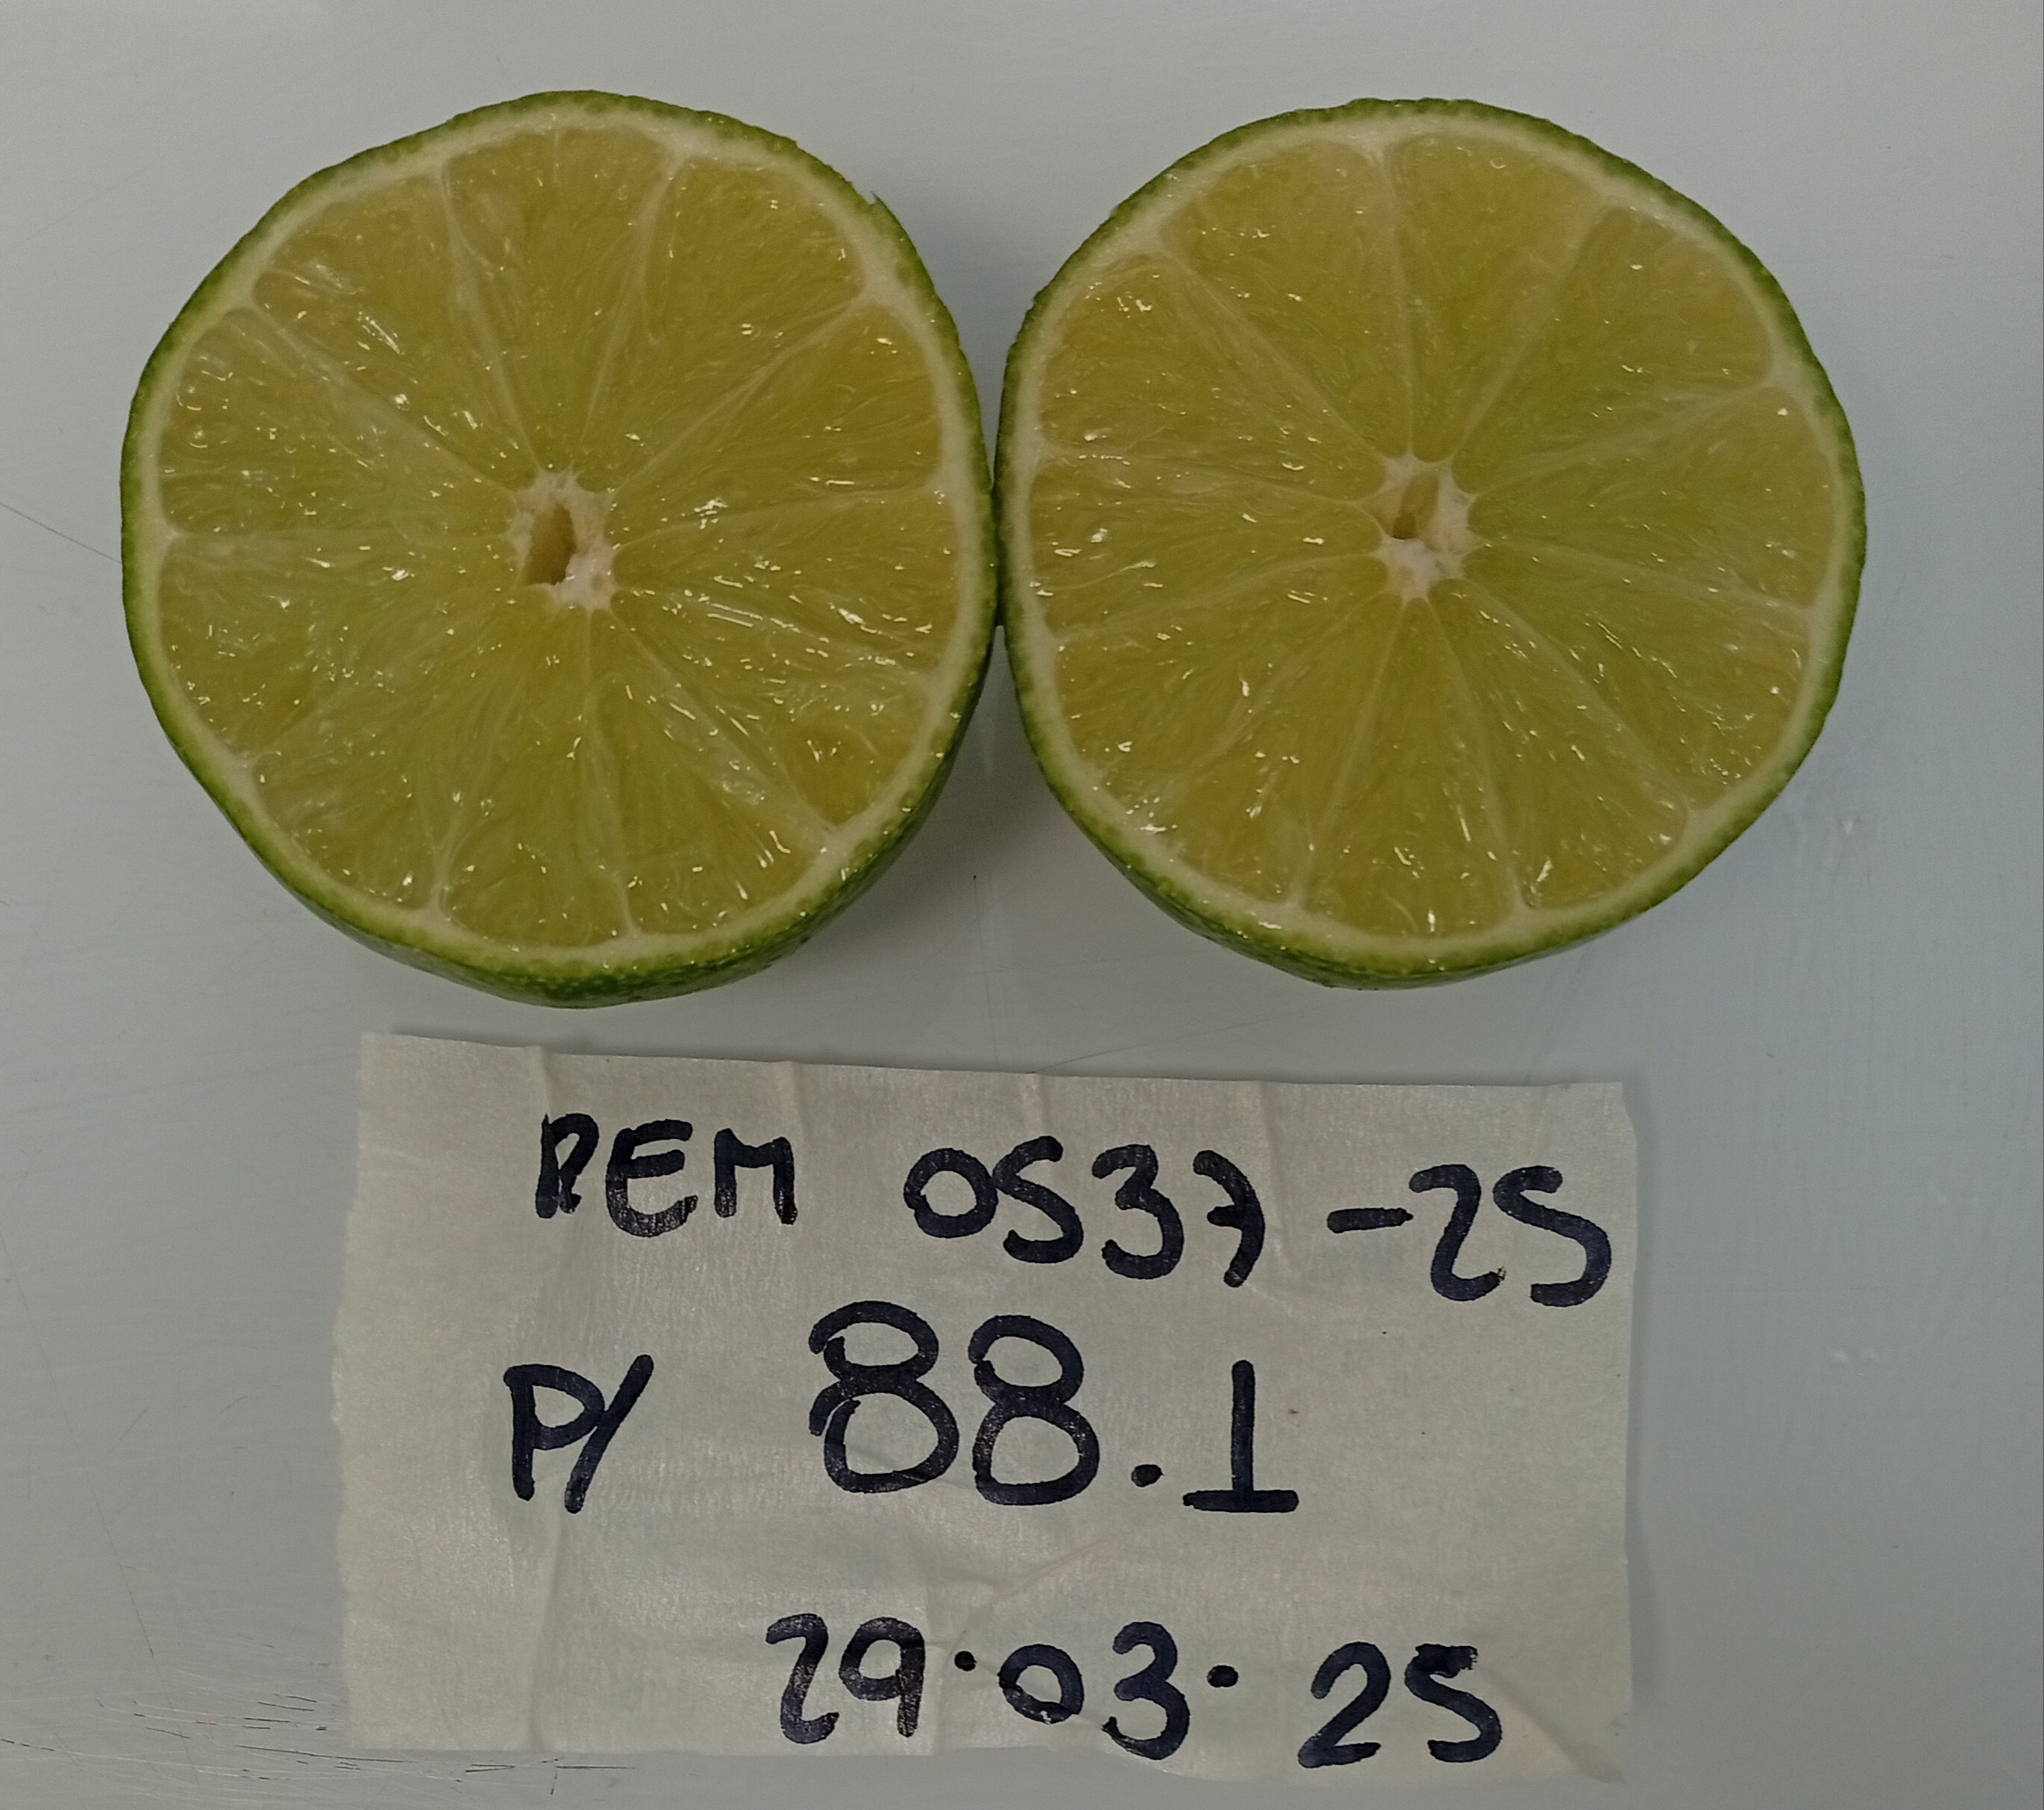 REM 0537-25
P/ 88.1
29.03.25